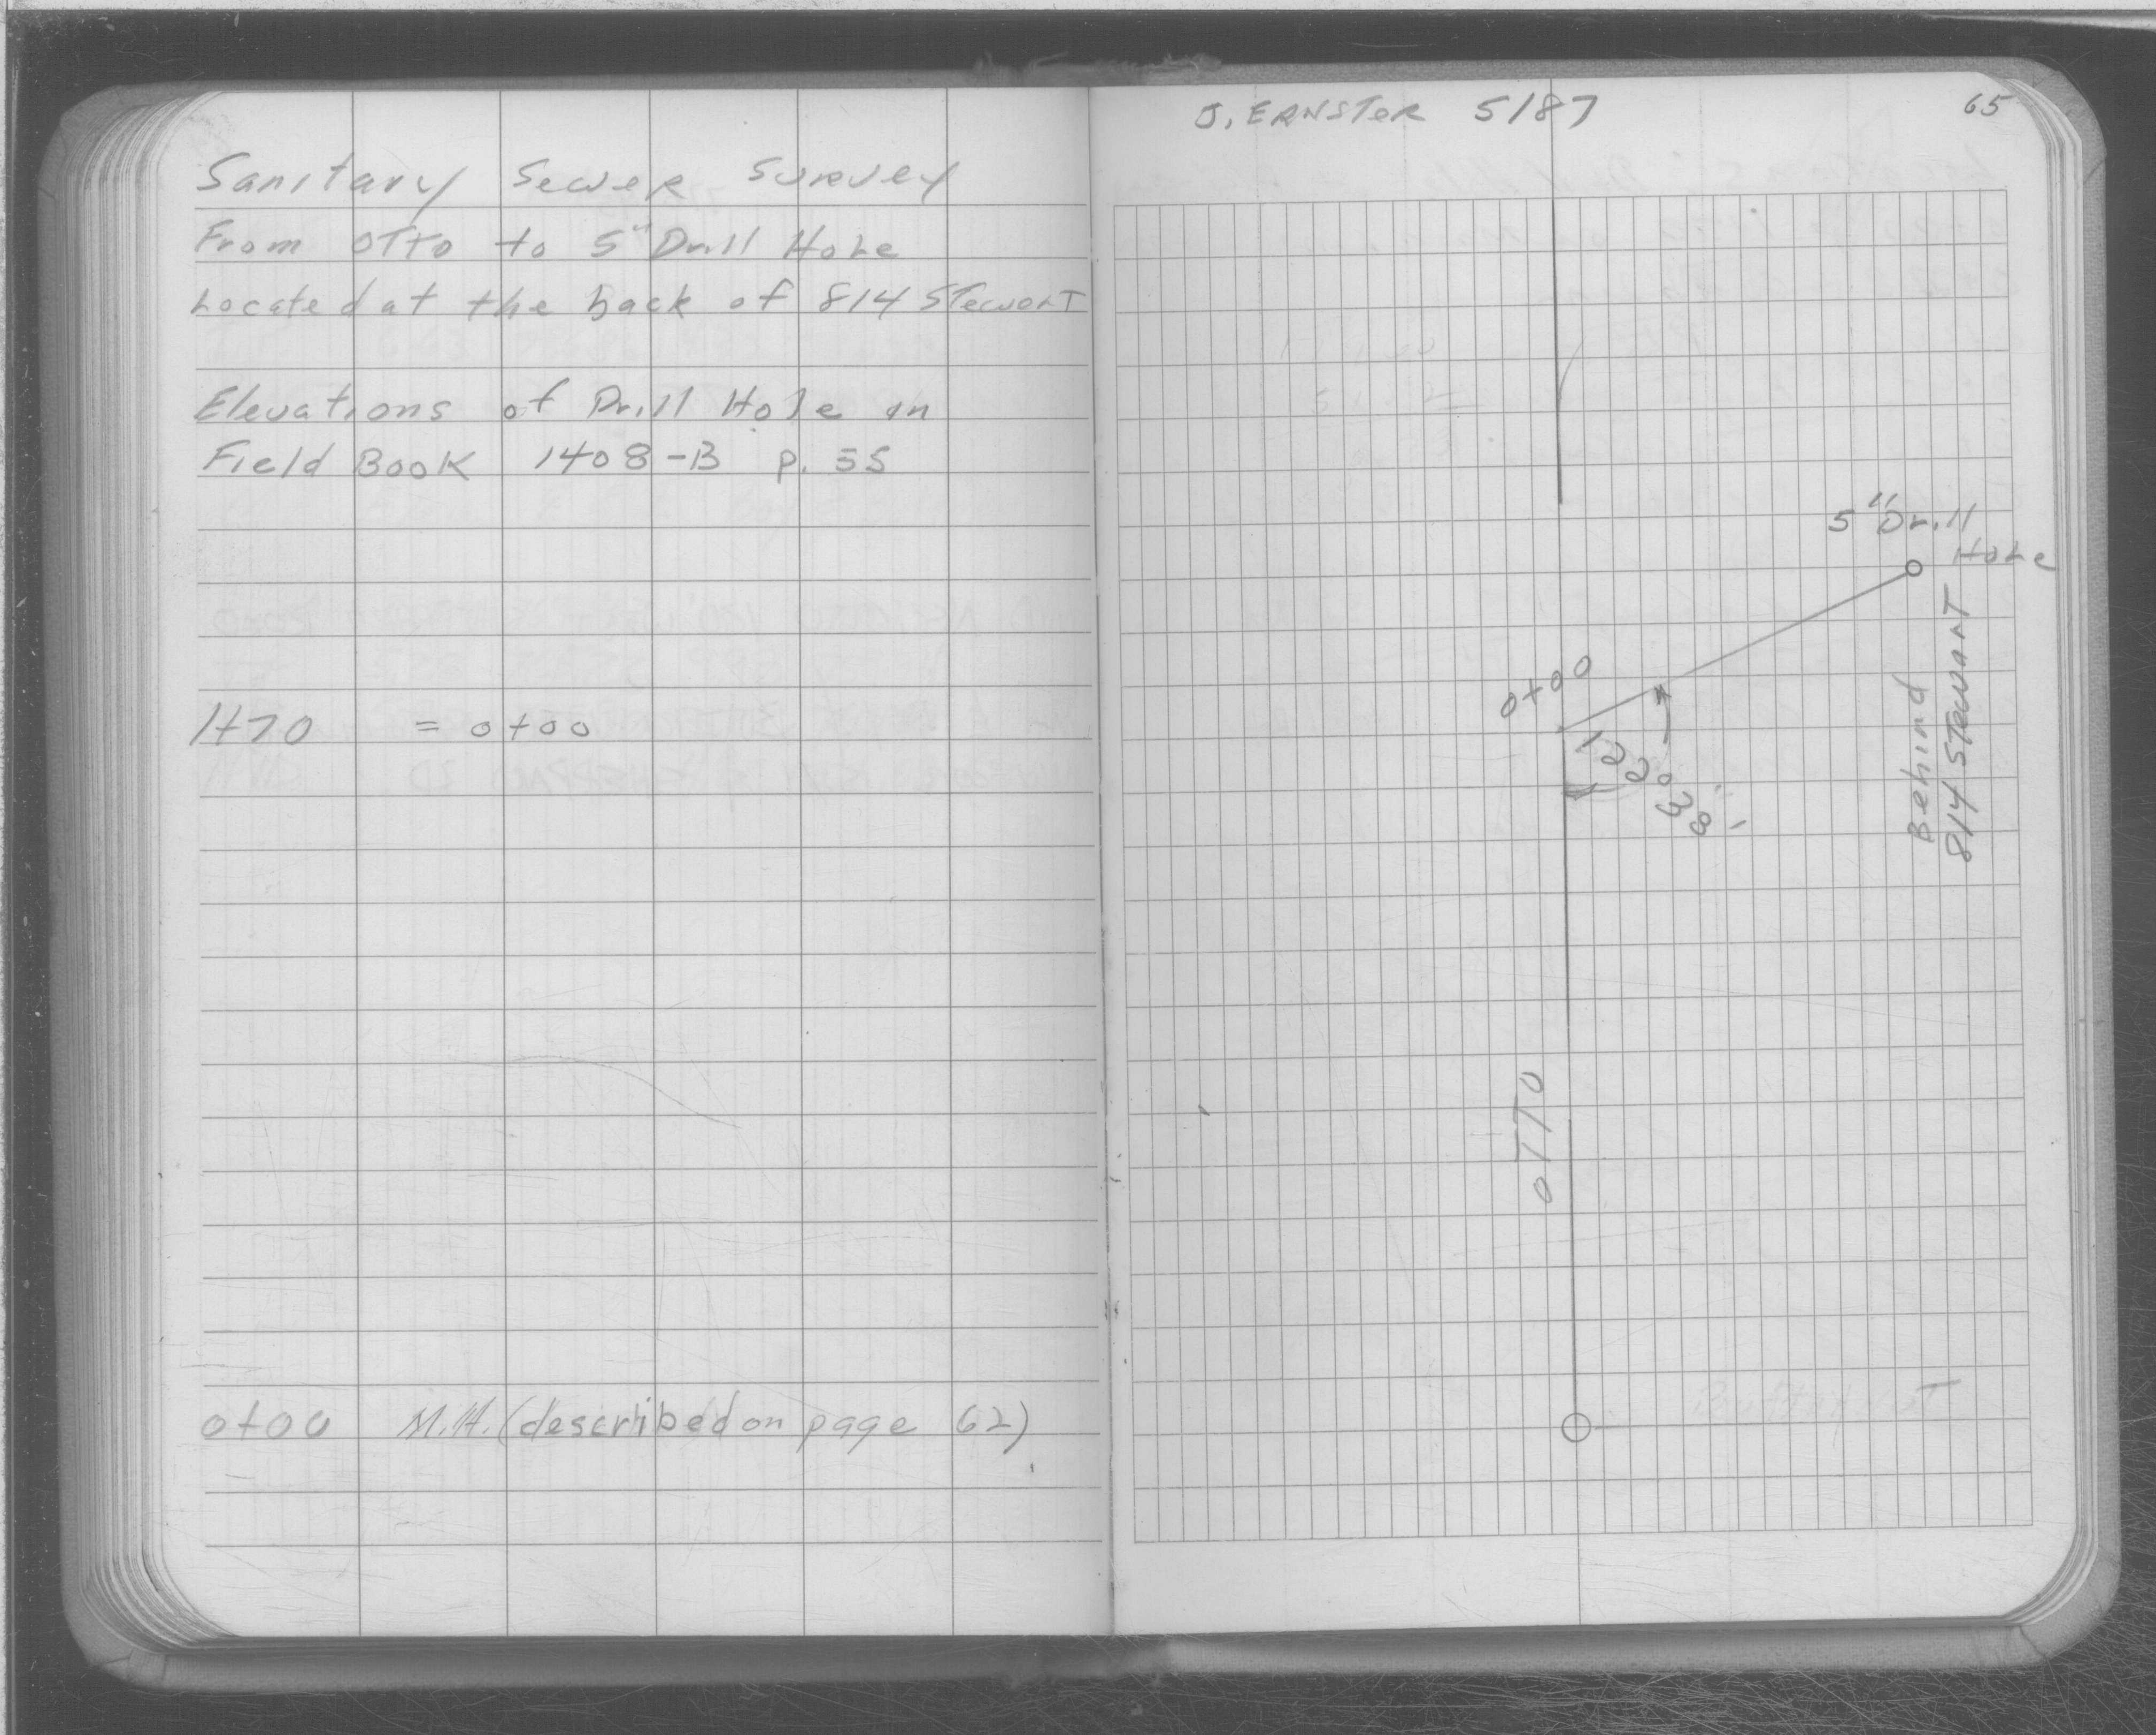 Sanitary Sewer Survey
From OTTO to 5" Drill Hole
Located at the back of 814 STewart
Elevations of Drill Hole in
Field Book 1408-B p. 55
1+70 = 0+00
0+00 M.H. (described on page 62)
J. ERNSTER 5/87
65
5" Drill
Hole
0+00
122° 38'
Behind
814 STewart
OTTO